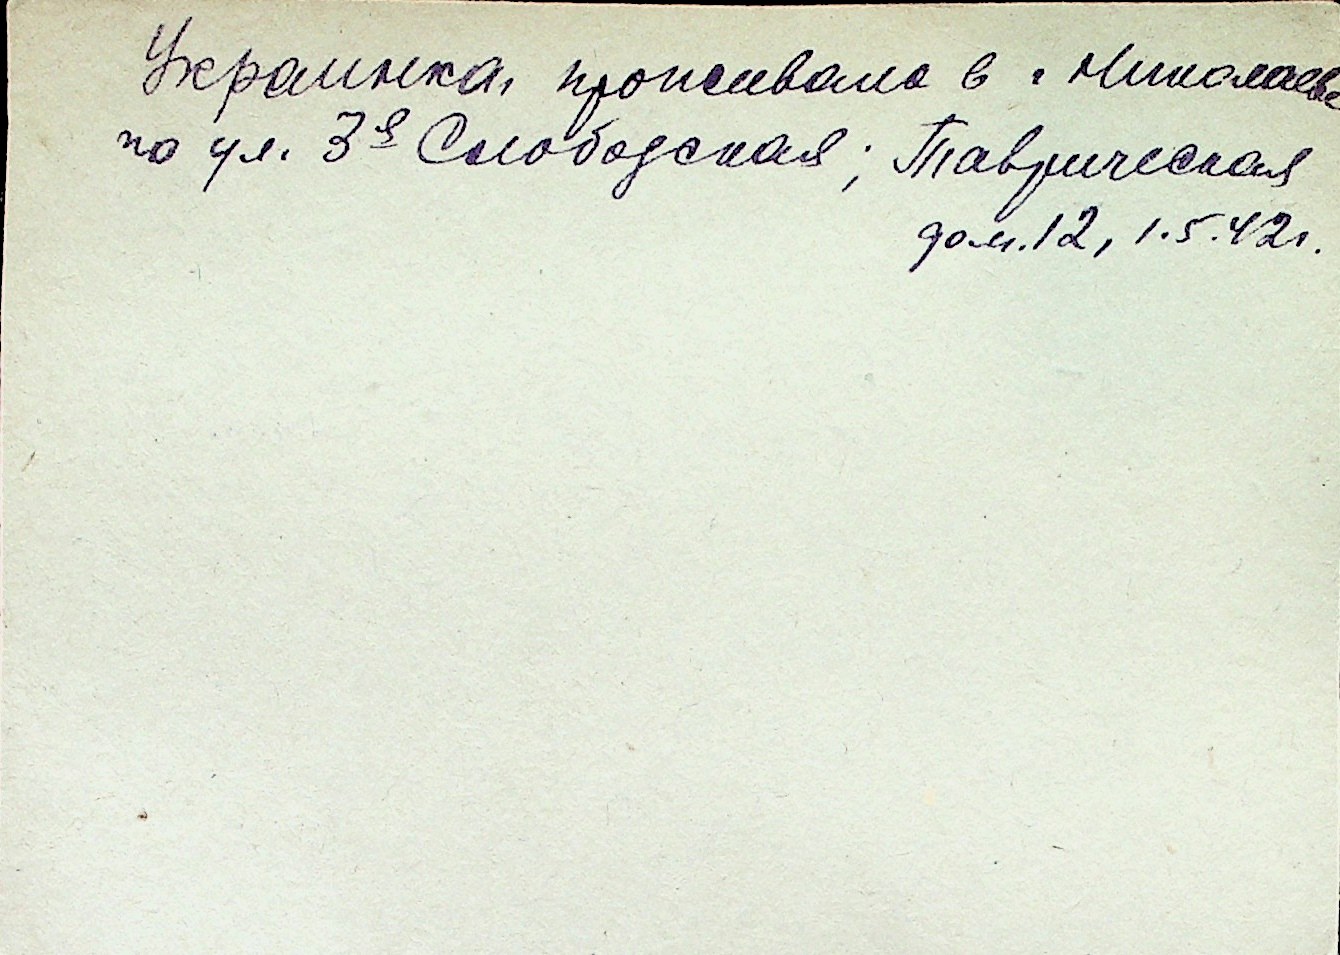 Украинка, проживала в г Николаеве
по ул. 3я Слободская; Таврическая
дом. 12, 1.5.42г.